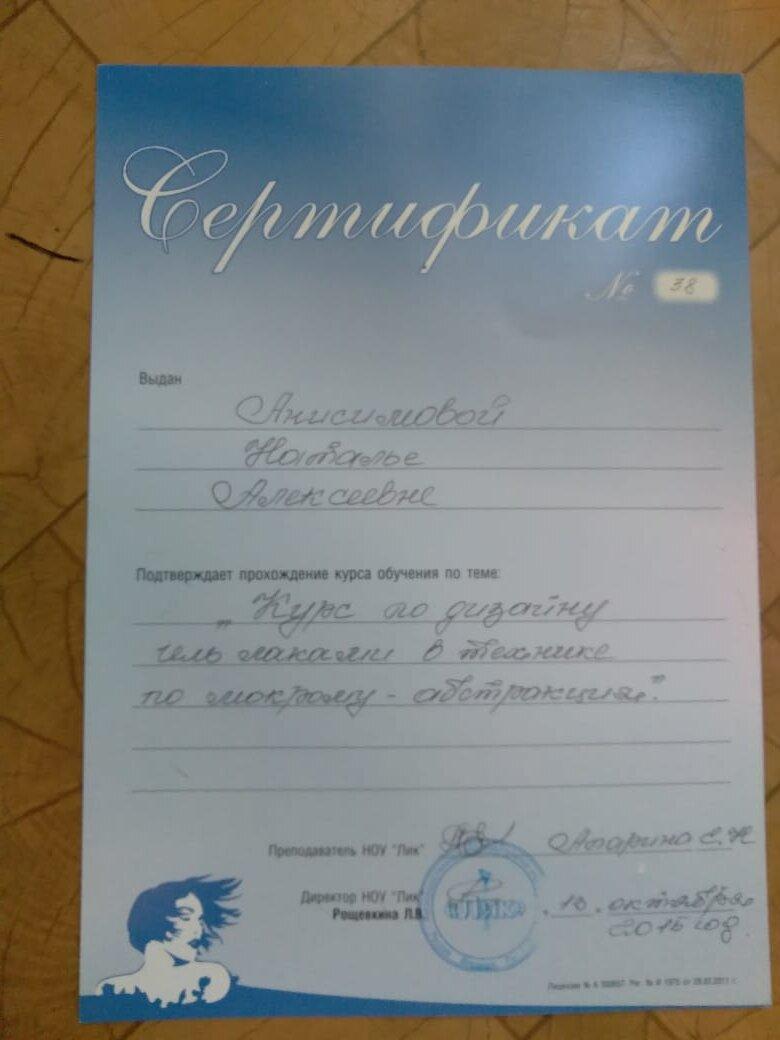 Сертификат
№ 38
Выдан
Анисимовой
Наталье
Алексеевне
Подтверждает прохождение курса обучения по теме:
„Курс по дизайну
гель лаками в технике
по мокрому - абстракция".
Преподаватель НОУ "Лик"
Директор НОУ "Лик"
Рощевкина Л.В.
«Лик»
октября
2015 год
Лицензия № А